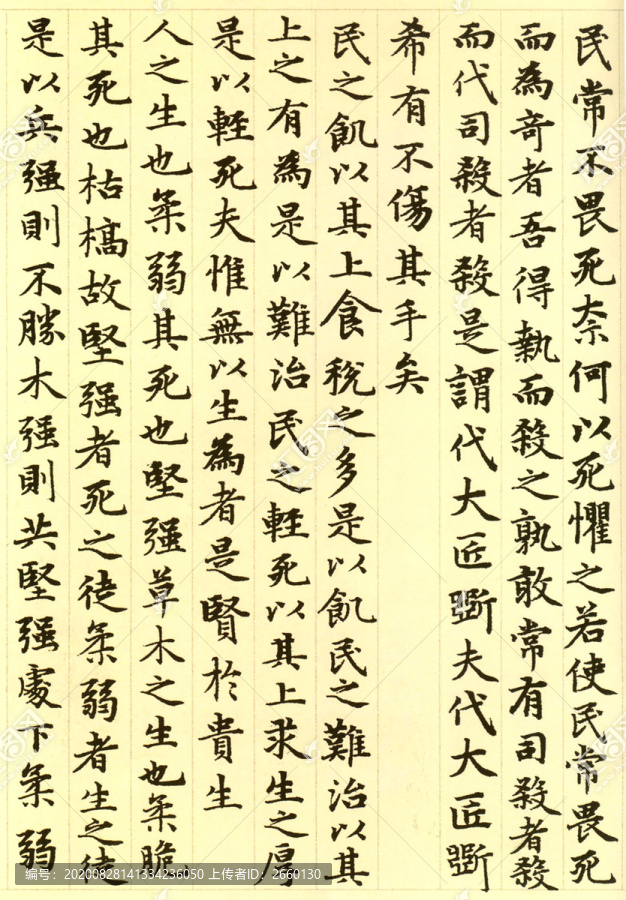 民常不畏死奈何以死懼之若使民常畏死
而為奇者吾得執而殺之孰敢常有司殺者殺
而代司殺者殺是謂代大匠斲夫代大匠斲
希有不傷其手矣
民之飢以其上食稅之多是以飢民之難治以其
上之有為是以難治民之輕死以其上求生之厚
是以輕死夫惟無以生為者是賢於貴生
人之生也柔弱其死也堅强草木之生也柔脆
其死也枯槁故堅强者死之徒柔弱者生之徒
是以兵强則不勝木强則共堅强處下柔弱
编号：20200828141334236050 上传者ID：2660130